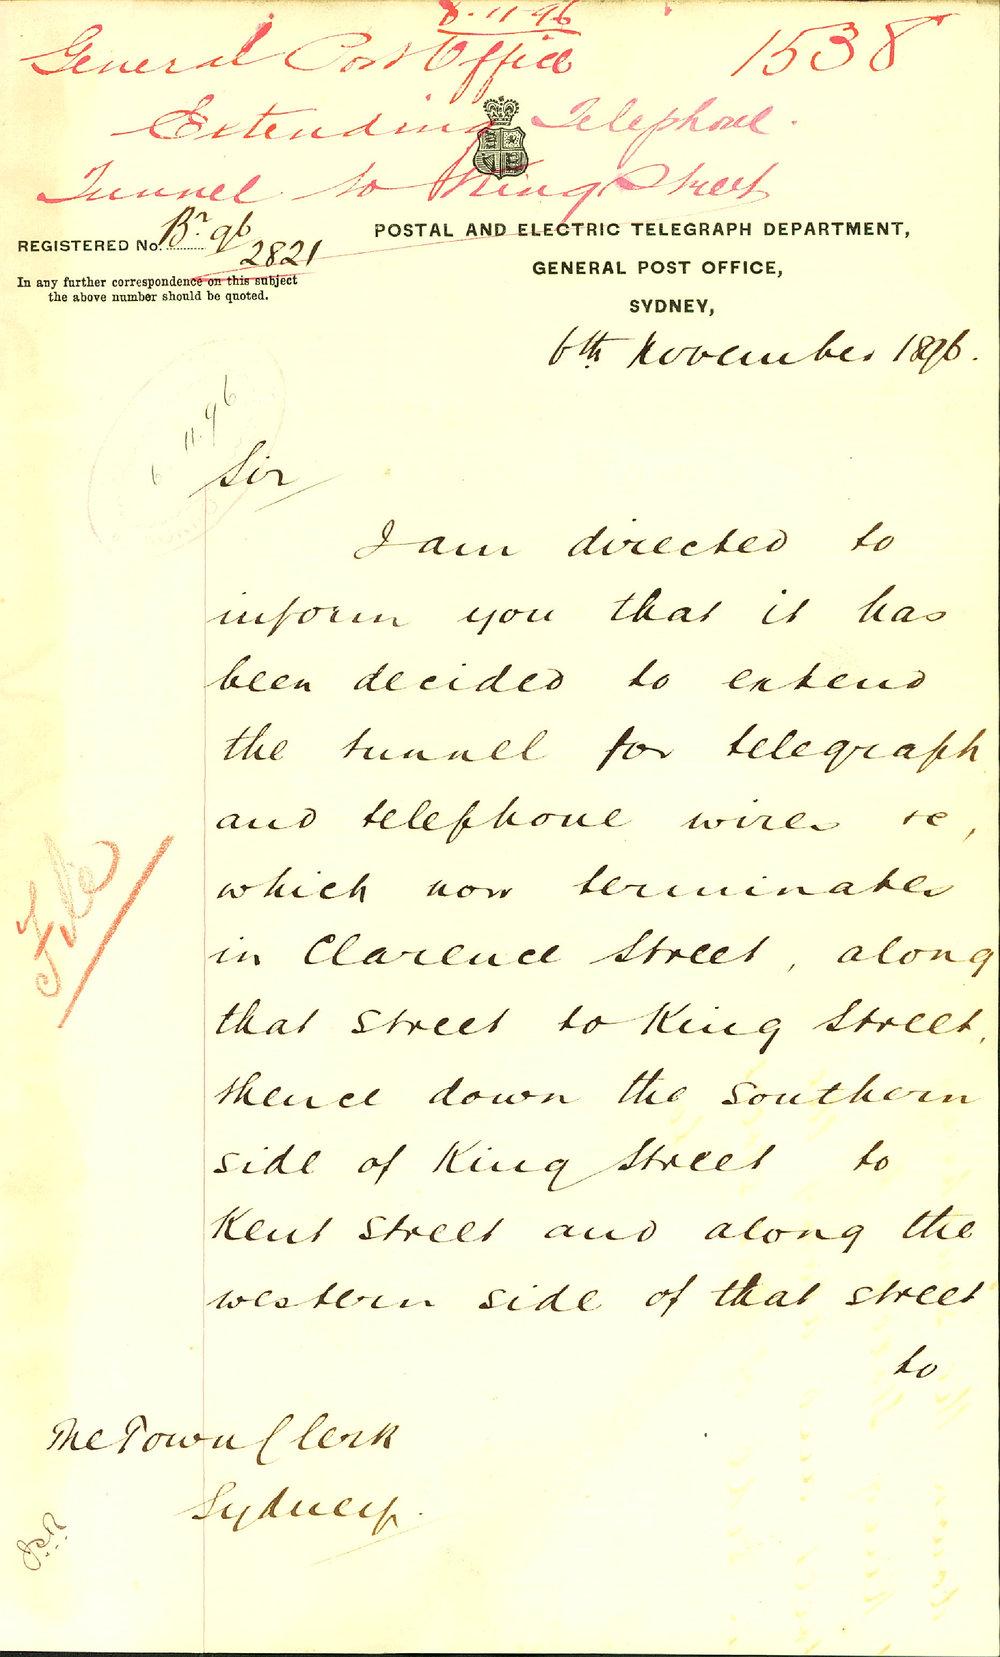 8-11-96
General Post Office
1538
Extending Telephone
Tunnel to King Street
REGISTERED No. Br. 96
2821
In any further correspondence on this subject
the above number should be quoted.
POSTAL AND ELECTRIC TELEGRAPH DEPARTMENT,
GENERAL POST OFFICE,
SYDNEY,
6th November 1896.
6 11.96
Sir
I am directed to
inform you that it has
been decided to extend
the tunnel for telegraph
and telephone wires &c,
which now terminates
in Clarence Street, along
that street to King Street,
thence down the southern
side of King Street to
Kent Street and along the
western side of that street
to
File
The Town Clerk
Sydney.